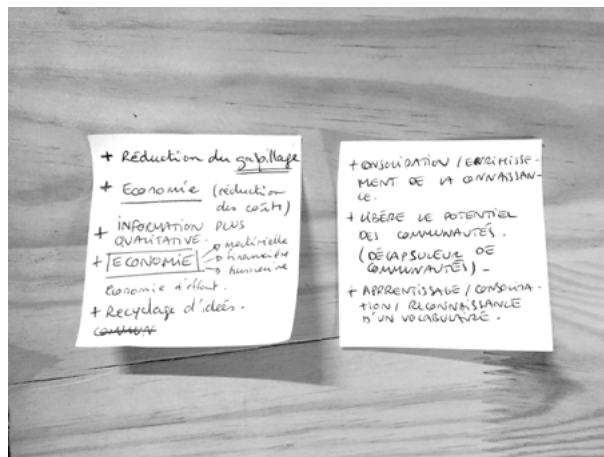 + Réduction du gaspillage
+ Economie (réduction
des coûts)
+ INFORMATION PLUS
QUALITATIVE.
+ ECONOMIE → matérielle
→ financière
→ humaine
Economie d'effort.
+ Recyclage d'idées.
COMMUN
+ CONSOLIDATION / ENRICHISSE-
MENT DE LA CONNAISSAN-
CE.
+ LIBÈRE LE POTENTIEL
DES COMMUNAUTÉS.
(DÉCAPSULEUR DE
COMMUNAUTÉS) -
+ APPRENTISSAGE / CONSOLIDA-
TION / RECONNAISSANCE
D'UN VOCABULAIRE.